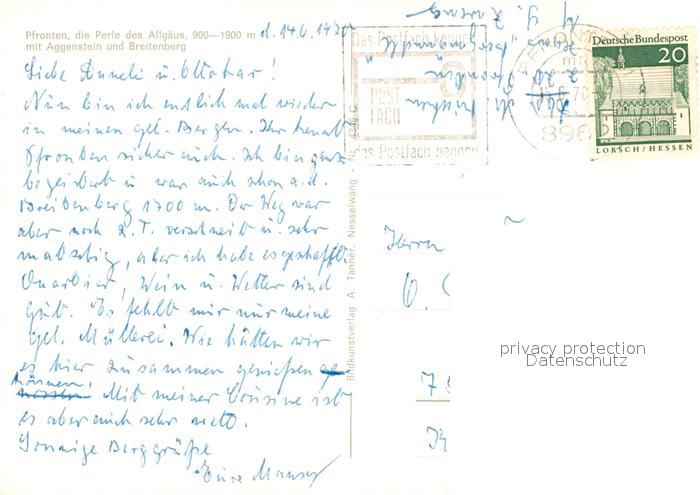 Pfronten, die Perle des Allgäus, 900—1900 m
mit Aggenstein und Breitenberg
d. 14.6.1970
Liebe Anneli u. Ottokar!
Nun bin ich endlich mal wieder
in meinen gel. Bergen. Ihr kennt
Pfronten sicher auch. Ich bin ganz
begeistert u. war auch schon a. d.
Breitenberg 1700 m. Der Weg war
aber noch z. T. verschneit u. sehr
matschig, aber ich habe es geschafft.
Quartier, Wein u. Wetter sind
gut. Es fehlt mir nur meine
gel. Müllerei. Wie hätten wir
es hier zusammen genießen
können! Mit meiner Cousine ist
es aber auch sehr nett.
Sonnige Berggrüße
Eure
Bildkunstverlag A. Tanner, Nesselwang
Das Postfach kennen
POST
FACH
das Postfach nennen
896
Deutsche Bundespost
20
LORSCH/HESSEN
Herrn
O.
privacy protection
Datenschutz